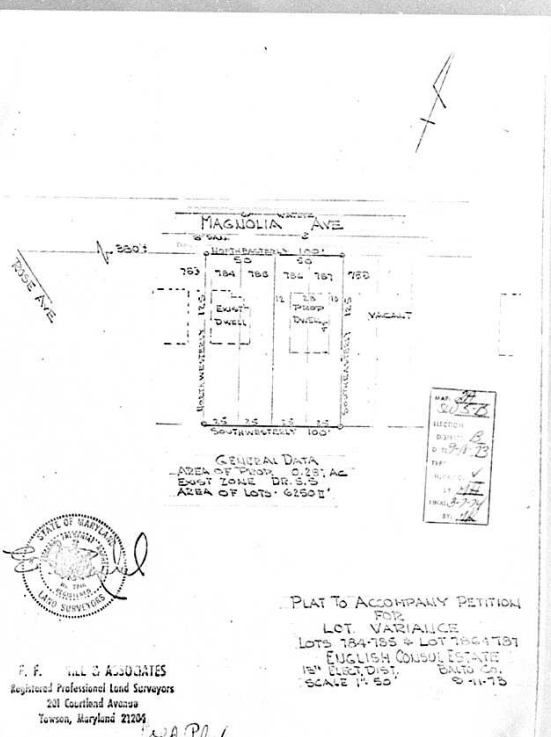 WATER
MAGNOLIA AVE
8" SAN.
330'±
NORTHEASTERLY 100'
50 50
783 784 785 786 787 788
ROSE AVE
EXIST
DWELL
12 28 10
PROP
DWELL
VACANT
NORTHWESTERLY 125
SOUTHEASTERLY 125
25 25 25 25
SOUTHWESTERLY 100'
GENERAL DATA
AREA OF PROP. 0.28± AC
EXIST ZONE DR. 5.5
AREA OF LOTS. 6250 □'
MAP: 3A
SW 5-B
ELECTION
DISTRICT 13
DATE 9-18-73
TYPE
BY
FINAL 3-7-74
BY
STATE OF MARYLAND
REGISTERED
LAND SURVEYORS
PLAT TO ACCOMPANY PETITION
FOR
LOT VARIANCE
LOTS 784-785 & LOT 786 & 787
ENGLISH CONSUL ESTATE
13TH ELECT. DIST. BALTO CO.
SCALE 1"= 50' 9-11-73
& ASSOCIATES
Registered Professional Land Surveyors
201 Courtland Avenue
Towson, Maryland 21204